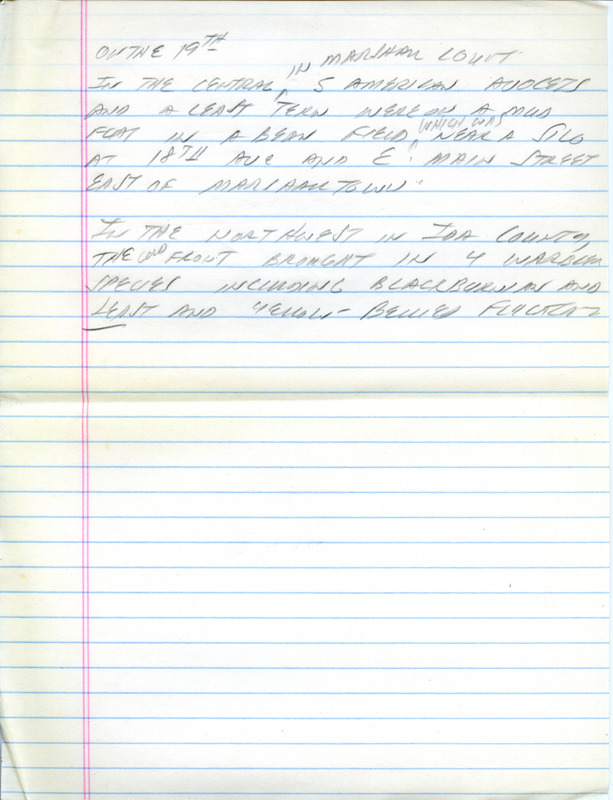 ON THE 19TH
IN THE CENTRAL IN MARSHALL COUNT 5 AMERICAN AVOCETS
AND A LEAST TERN WERE ON A MUD
FLAT IN A BEAN FIELD WHICH WAS NEAR A SILO
AT 18TH AVE AND E. MAIN STREET
EAST OF MARSHALLTOWN.
IN THE NORTHWEST IN IDA COUNTY,
THE COLD FRONT BROUGHT IN 4 WARBLER
SPECIES INCLUDING BLACKBURNIAN AND
LEAST AND YELLOW-BELLIED FLYCATC